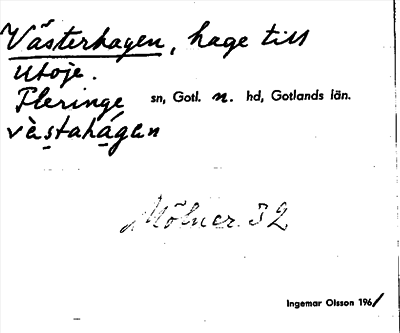 Västerhagen, hage till
Utoje.
Fleringe sn, Gotl. n. hd, Gotlands län.
vèstahágen
Mölner 32
Ingemar Olsson 1961